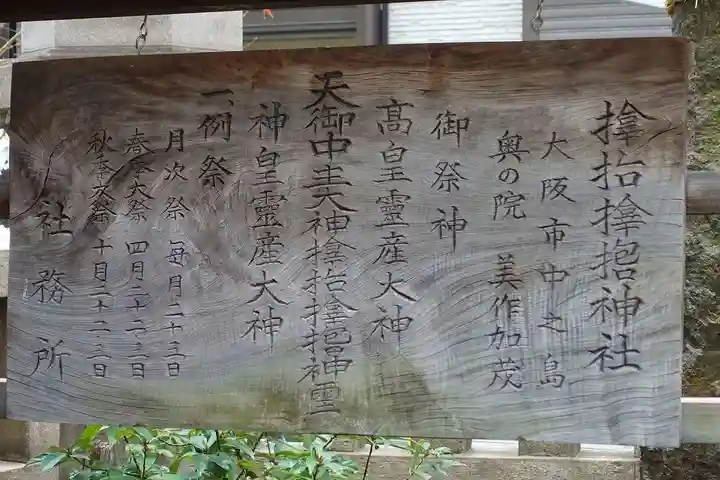 𪮷抬𪮷𫝼神社
大阪市中之島
奥の院 美作加茂
御祭神
高皇靈産大神
天御中主大神𪮷抬𪮷𫝼神霊
神皇靈産大神
一、例祭
月次祭 毎月二十三日
春季大祭 四月二十二、三日
秋季大祭 十月二十二、三日
社務所